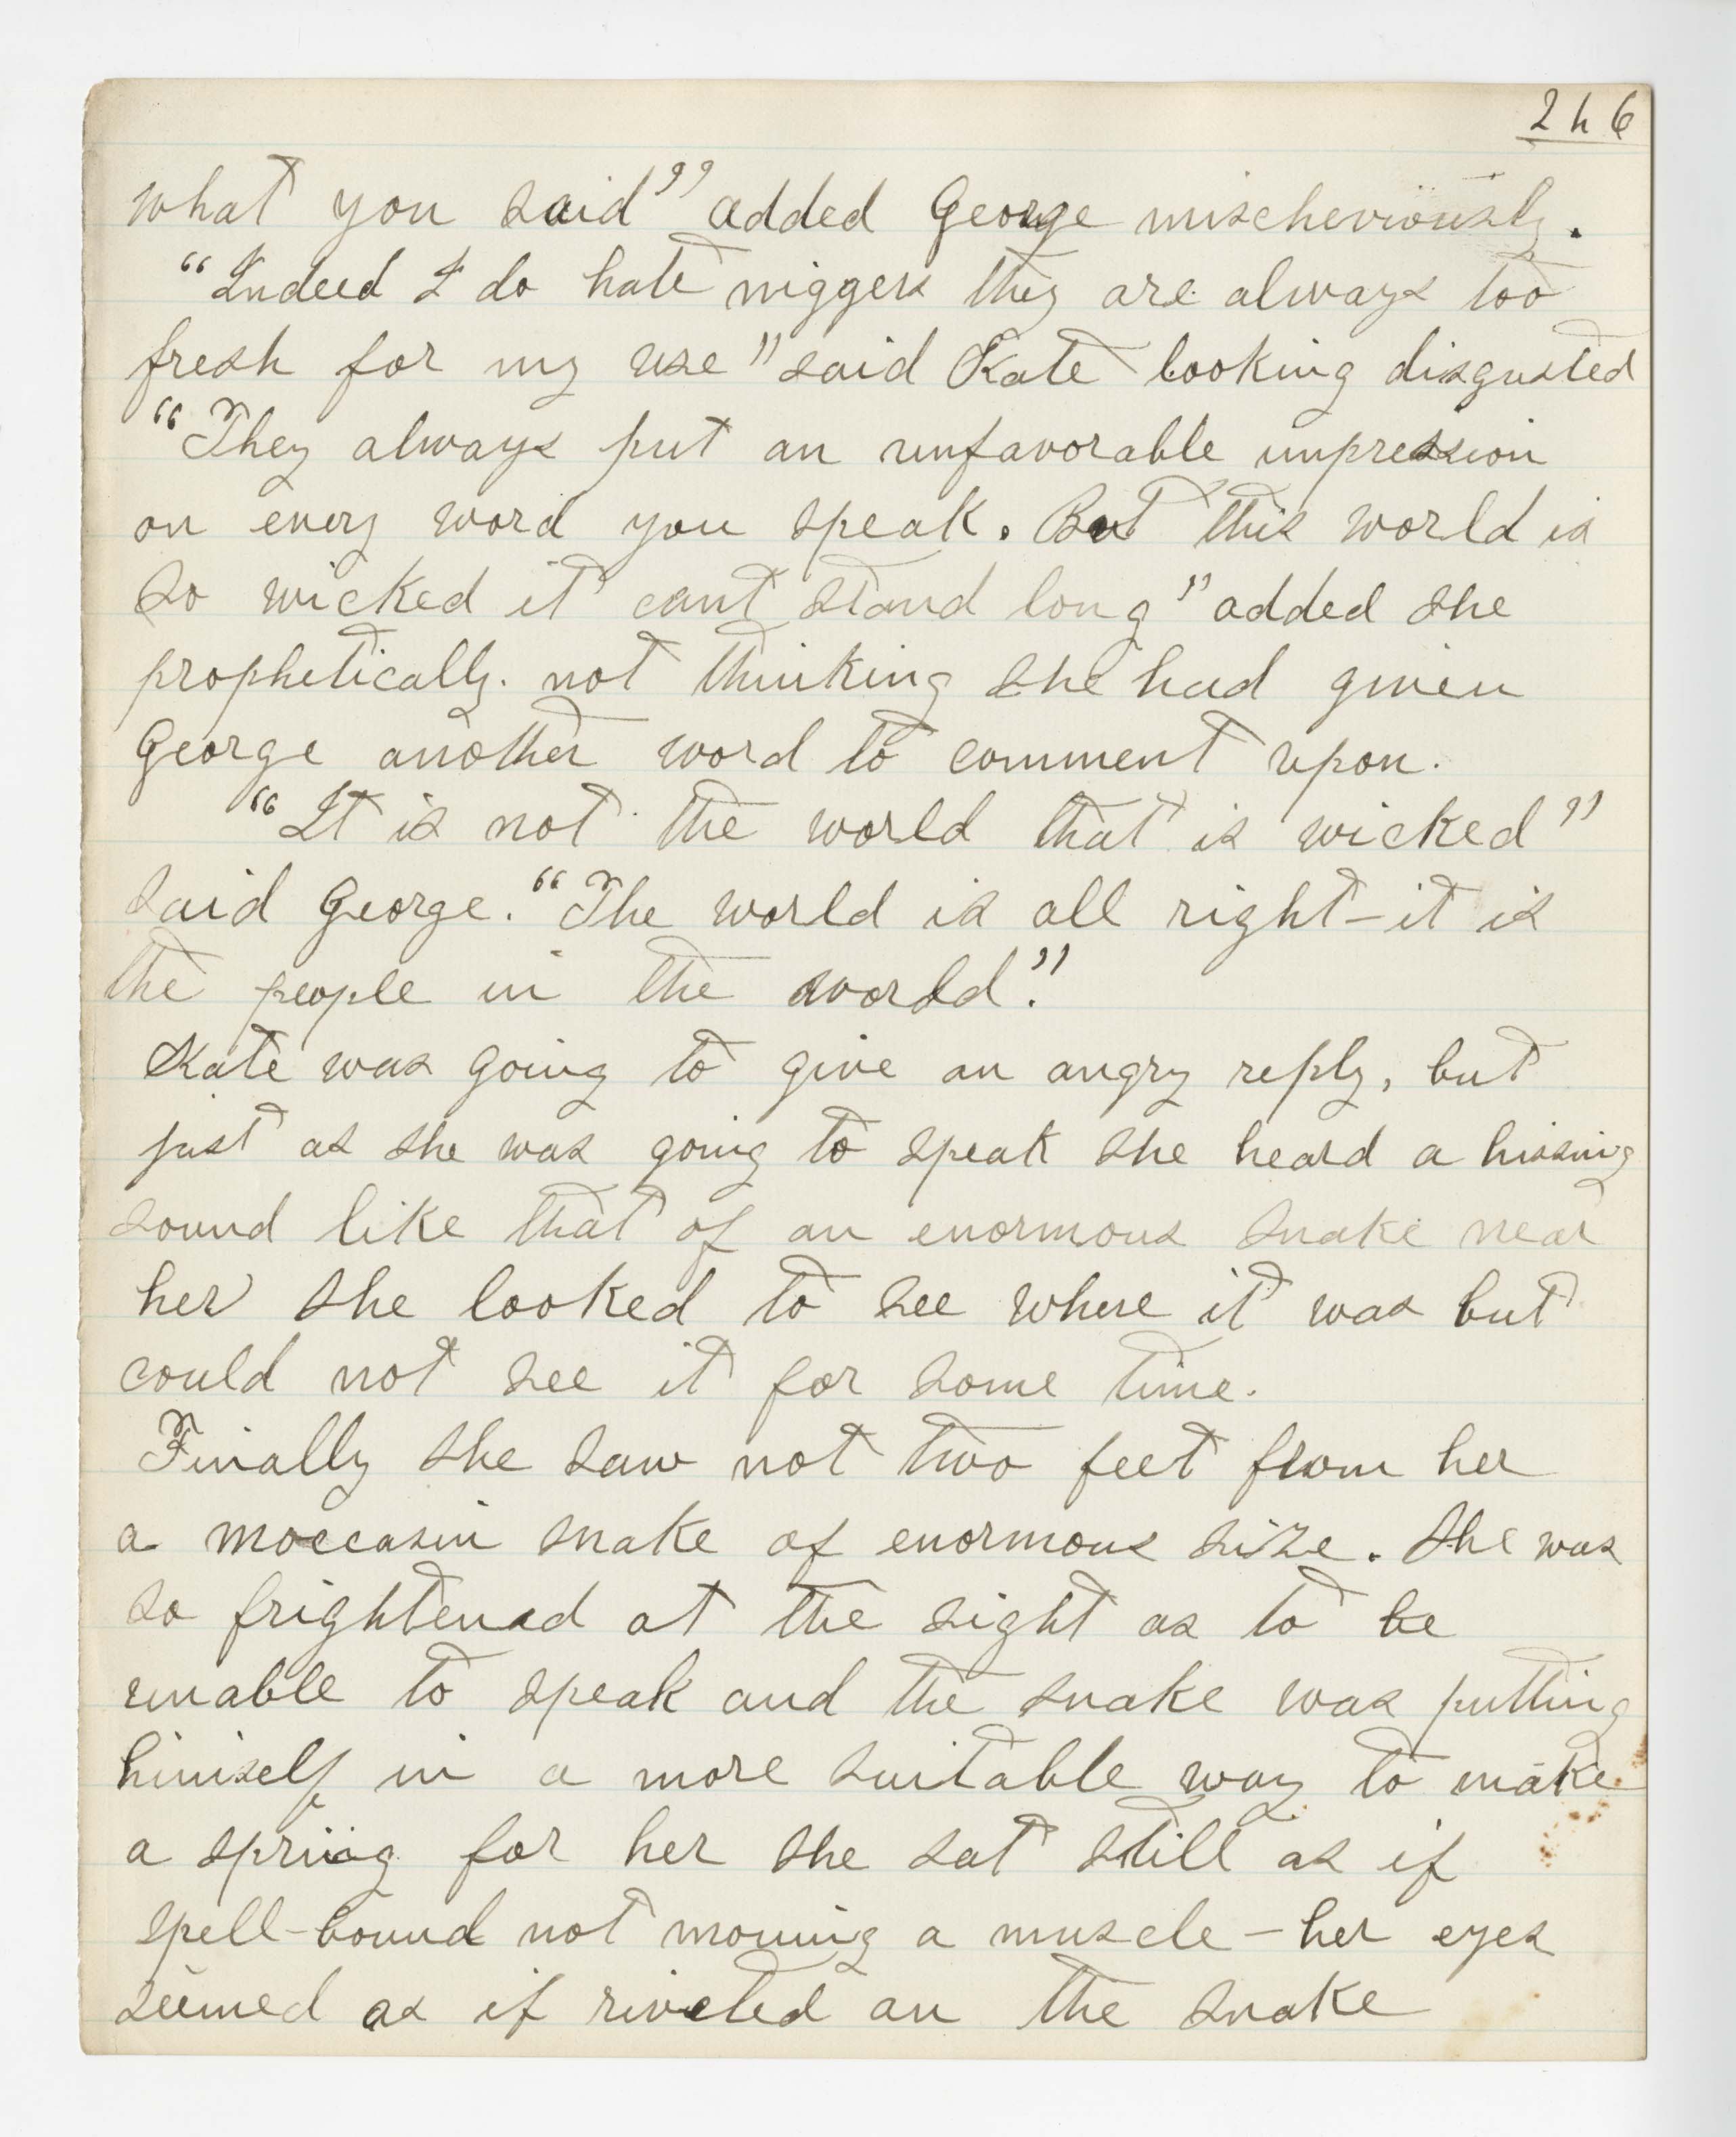 246
what you said" added George mischeviously.
"Indeed I do hate niggers they are always too
fresh for my use" said Kate looking disgusted
"They always put an unfavorable impression
on every word you speak. But this world is
so wicked it cant stand long" added she
prophetically. not thinking she had given
George another word to comment upon.
"It is not the world that is wicked"
said George. "The world is all right - it is
the people in the world."
Kate was going to give an angry reply, but
just as she was going to speak she heard a hissing
sound like that of an enormous snake near
her she looked to see where it was but
could not see it for some time.
Finally she saw not two feet from her
a moccasin snake of enormous size. She was
so frightened at the sight as to be
unable to speak and the snake was putting
himself in a more suitable way to make
a spring for her she sat still as if
spell-bound not moving a muscle - her eyes
seemed as if riveted on the snake